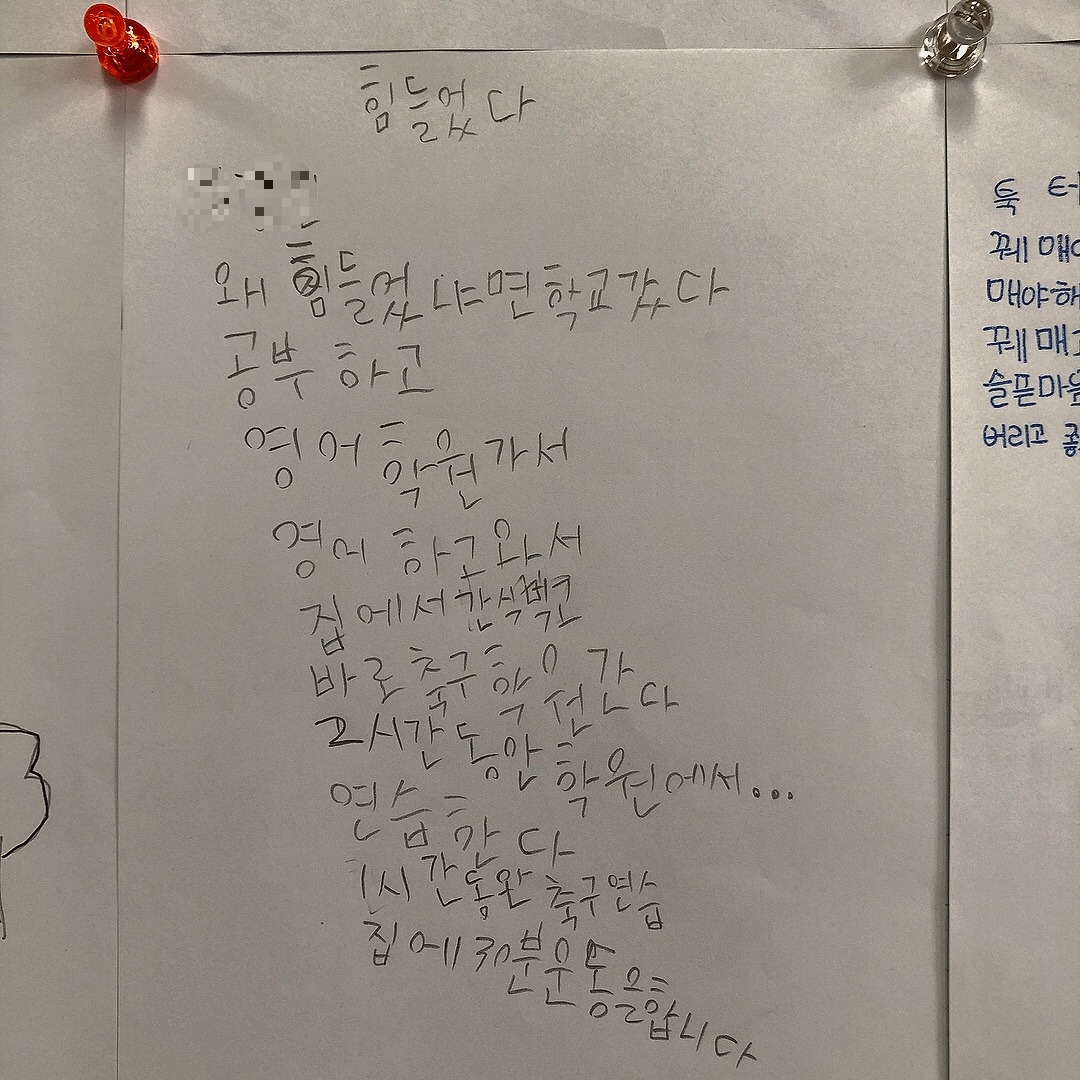 힘들었다
왜 힘들었냐면학교갔다
공부 하고
영어 학원가서
영어 하고와서
집에서간식먹고
바로축구학원간다
2시간동안학원에서...
연습한다
1시간동완축구연습
집에30분운동을합니다
툭 터
꿰매
매야해
꿰매고
슬픈마음
버리고